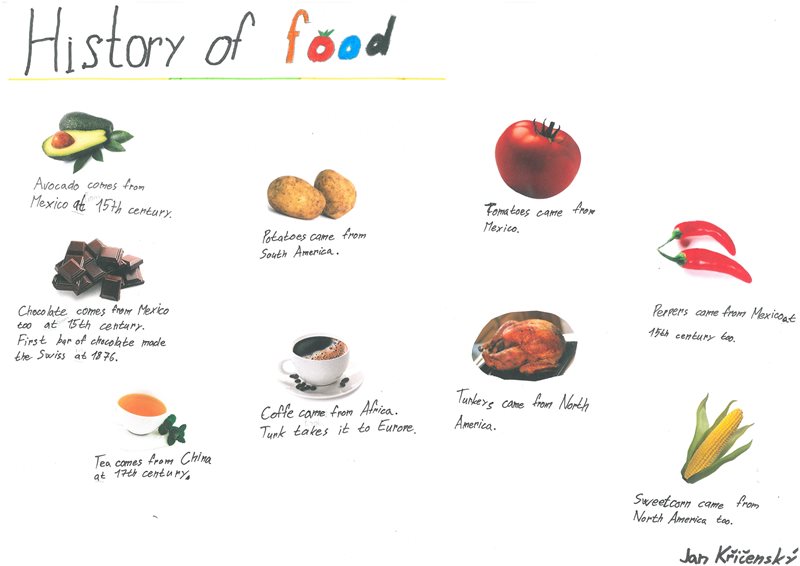 History of food
Avocado comes from
Mexico at 15th century.
Potatoes came from
South America.
Tomatoes came from
Mexico.
Peppers came from Mexico at
15th century too.
Chocolate comes from Mexico
too at 15th century.
First bar of chocolate made
the Swiss at 1876.
Coffe came from Africa.
Turk takes it to Europe.
Turkeys came from North
America.
Tea comes from China
at 17th century.
Sweetcorn came from
North America too.
Jan Křičenský